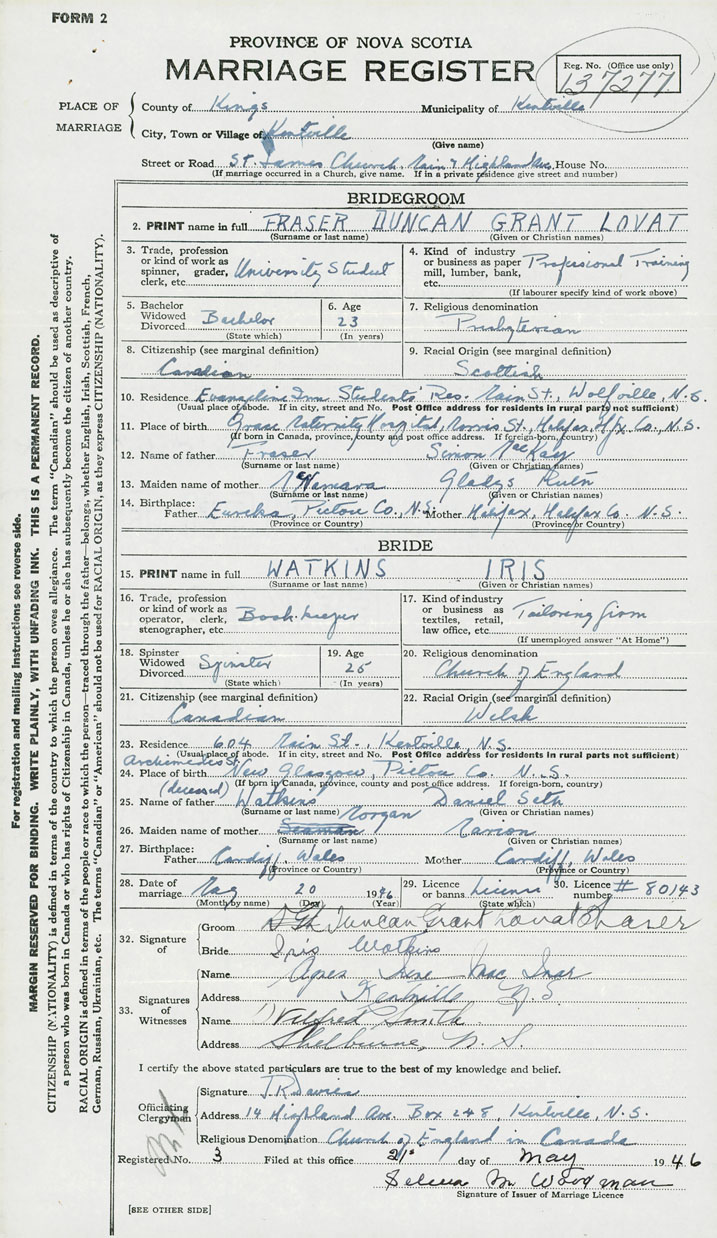 FORM 2
PROVINCE OF NOVA SCOTIA
MARRIAGE REGISTER
Reg. No. (Office use only)
137277
PLACE OF MARRIAGE
County of Kings Municipality of Kentville
City, Town or Village of Kentville
(Give name)
Street or Road St. James Church, Main & Highland Ave, House No.
(If marriage occurred in a Church, give name. If in a private residence give street and number)
BRIDEGROOM
2. PRINT name in full FRASER DUNCAN GRANT LOVAT
(Surname or last name) (Given or Christian names)
3. Trade, profession or kind of work as spinner, grader, clerk, etc. University Student
4. Kind of industry or business as paper mill, lumber, bank, etc. Professional Training
(If labourer specify kind of work above)
5. Bachelor Widowed Divorced Bachelor
(State which)
6. Age 23
(In years)
7. Religious denomination Presbyterian
8. Citizenship (see marginal definition) Canadian
9. Racial Origin (see marginal definition) Scottish
10. Residence Evangeline Inn Students' Res. Main St., Wolfville, N.S.
(Usual place of abode. If in city, street and No. Post Office address for residents in rural parts not sufficient)
11. Place of birth Grace Maternity Hospital, Morris St., Halifax, Hfx Co., N.S.
(If born in Canada, province, county and post office address. If foreign-born, country)
12. Name of father Fraser Simon MacKay
(Surname or last name) (Given or Christian names)
13. Maiden name of mother McNamara Gladys
(Surname or last name) (Given or Christian names)
14. Birthplace: Father Eureka, Pictou Co., N.S. Mother Halifax, Halifax Co. N.S.
(Province or Country) (Province or Country)
BRIDE
15. PRINT name in full WATKINS IRIS
(Surname or last name) (Given or Christian names)
16. Trade, profession or kind of work as operator, clerk, stenographer, etc. Book-keeper
17. Kind of industry or business as textiles, retail, law office, etc. Tailoring firm
(If unemployed answer "At Home")
18. Spinster Widowed Divorced Spinster
(State which)
19. Age 25
(In years)
20. Religious denomination Church of England
21. Citizenship (see marginal definition) Canadian
22. Racial Origin (see marginal definition) Welsh
23. Residence 604 Main St., Kentville, N.S.
(Usual place of abode. If in city, street and No. Post Office address for residents in rural parts not sufficient)
Archimedes St.
24. Place of birth New Glasgow, Pictou Co. N.S.
(If born in Canada, province, county and post office address. If foreign-born, country)
(deceased)
25. Name of father Watkins Daniel Seth
(Surname or last name) (Given or Christian names)
Morgan
26. Maiden name of mother Seaman Marion
(Surname or last name) (Given or Christian names)
27. Birthplace: Father Cardiff, Wales Mother Cardiff, Wales
(Province or Country) (Province or Country)
28. Date of marriage May 20 1946
(Month by name) (Day) (Year)
29. Licence or banns License
(State which)
30. Licence number # 80143
32. Signature of
Groom Duncan Grant Lovat Fraser
Bride Iris Watkins
33. Signatures of Witnesses
Name Agnes Mac
Address Kentville N.S
Name Wilfred Smith
Address Shelburne, N.S.
I certify the above stated particulars are true to the best of my knowledge and belief.
Officiating Clergyman
Signature T.R. Davies
Address 14 Highland Ave. Box 248, Kentville, N.S.
Religious Denomination Church of England in Canada
Registered No. 3 Filed at this office 21st day of May 1946
Selena M Woodman
Signature of Issuer of Marriage Licence
[SEE OTHER SIDE]
For registration and mailing instructions see reverse side.
MARGIN RESERVED FOR BINDING. WRITE PLAINLY, WITH UNFADING INK. THIS IS A PERMANENT RECORD.
CITIZENSHIP (NATIONALITY) is defined in terms of the country to which the person owes allegiance. The term "Canadian" should be used as descriptive of
a person who was born in Canada or who has rights of Citizenship in Canada, unless he or she has subsequently become the citizen of another country.
RACIAL ORIGIN is defined in terms of the people or race to which the person—traced through the father—belongs, whether English, Irish, Scottish, French,
German, Russian, Ukrainian, etc. The terms "Canadian" or "American" should not be used for RACIAL ORIGIN, as they express CITIZENSHIP (NATIONALITY).